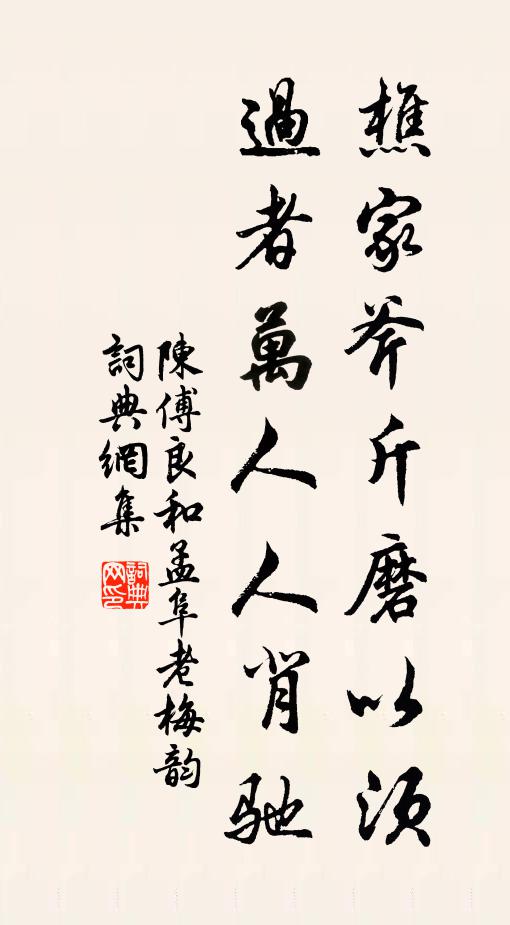 樵家斧斤磨以須
過者萬人人肖馳
陳傅良和孟阜老梅韵
詞典網集
詞典
网印